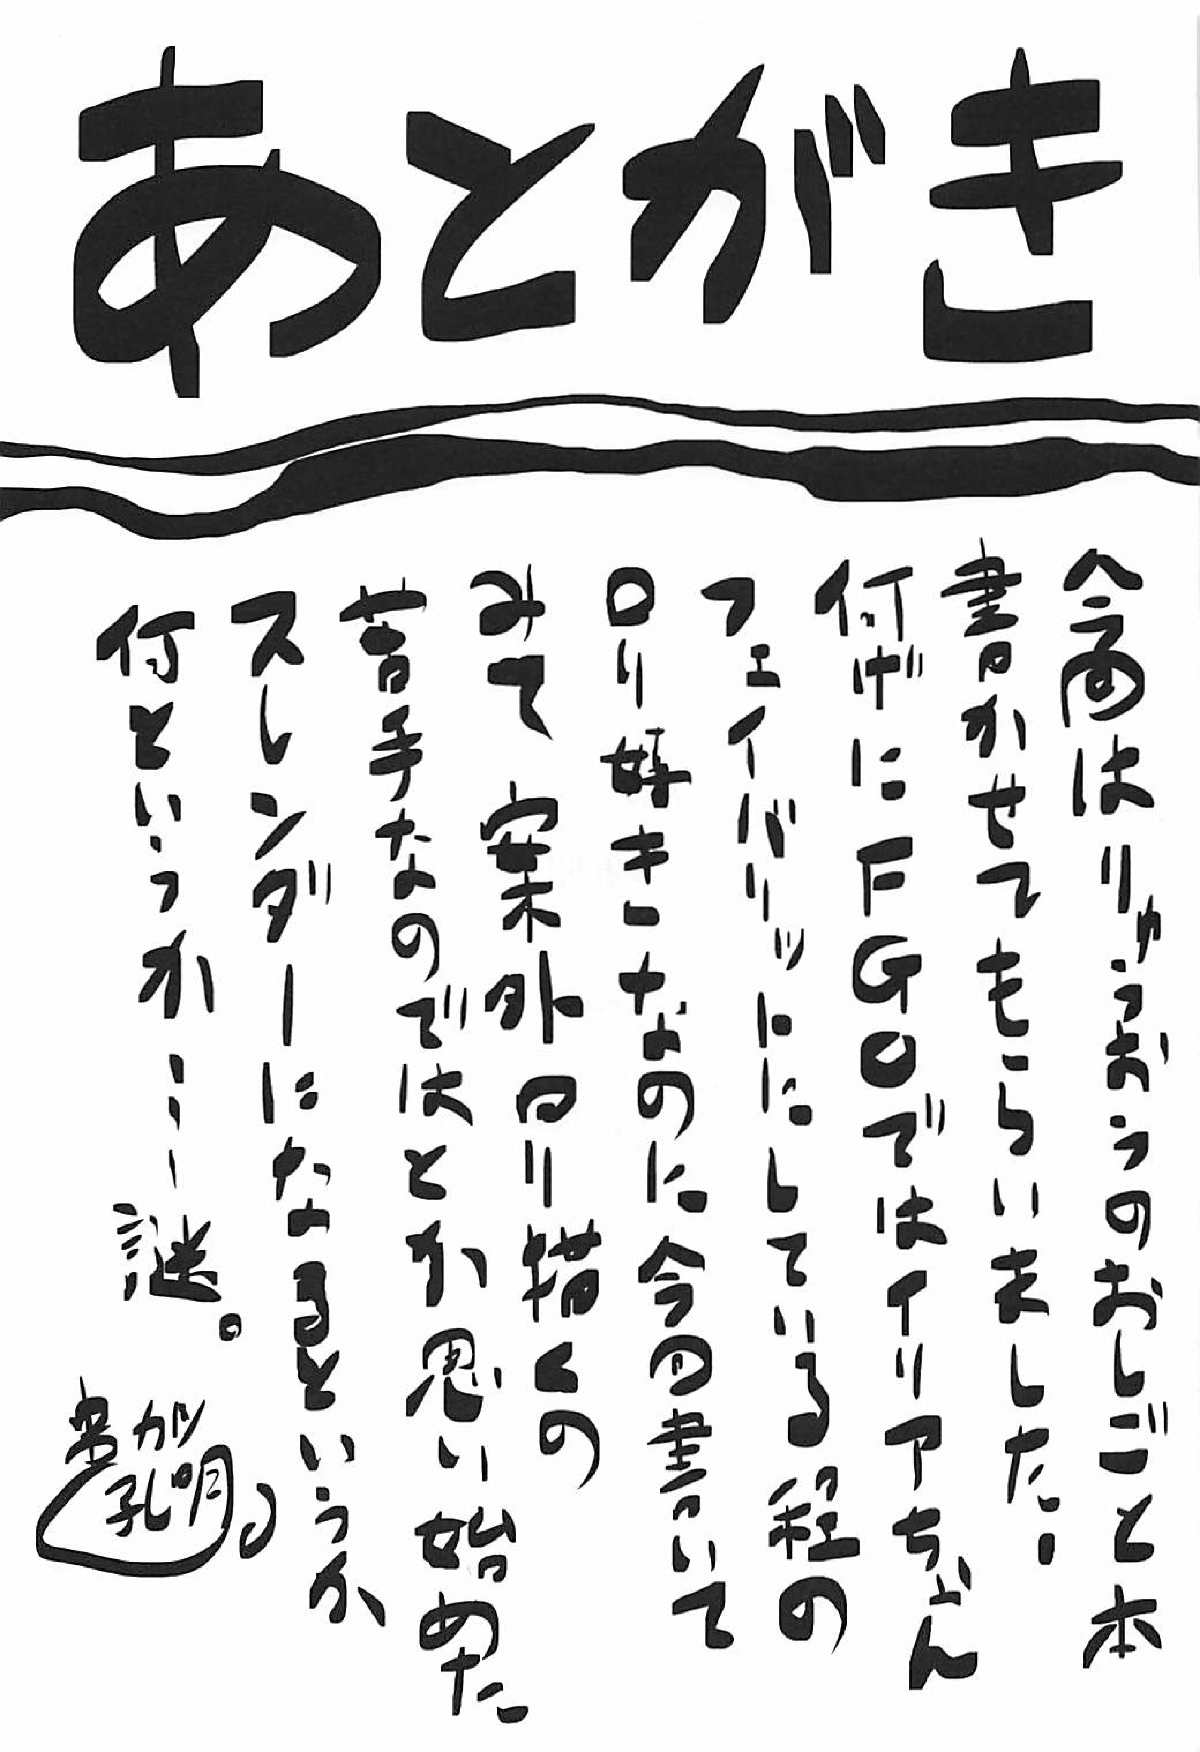 あとがき
今回はりゅうおうのおしごと本
書かせてもらいました！
何げにFGOではイリアちゃん
フェイバリットにしている程の
ロリ好きーなのに今回書いて
みて案外ロリ描くの
苦手なのではとか思い始めた
スレンダーになるというか
何というか……謎。